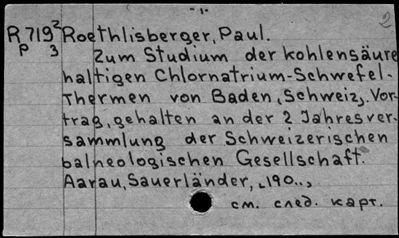 -1-
2
R 719² Roethlisberger, Paul.
P 3 Zum Studium der kohlensäure
haltigen Chlornatrium-Schwefel-
Thermen von Baden, Schweiz. Vor-
trag, gehalten an der 2 Jahresver-
sammlung der Schweizerischen
balneologischen Gesellschaft.
Aarau, Sauerländer, „190..,
см. след. карт.